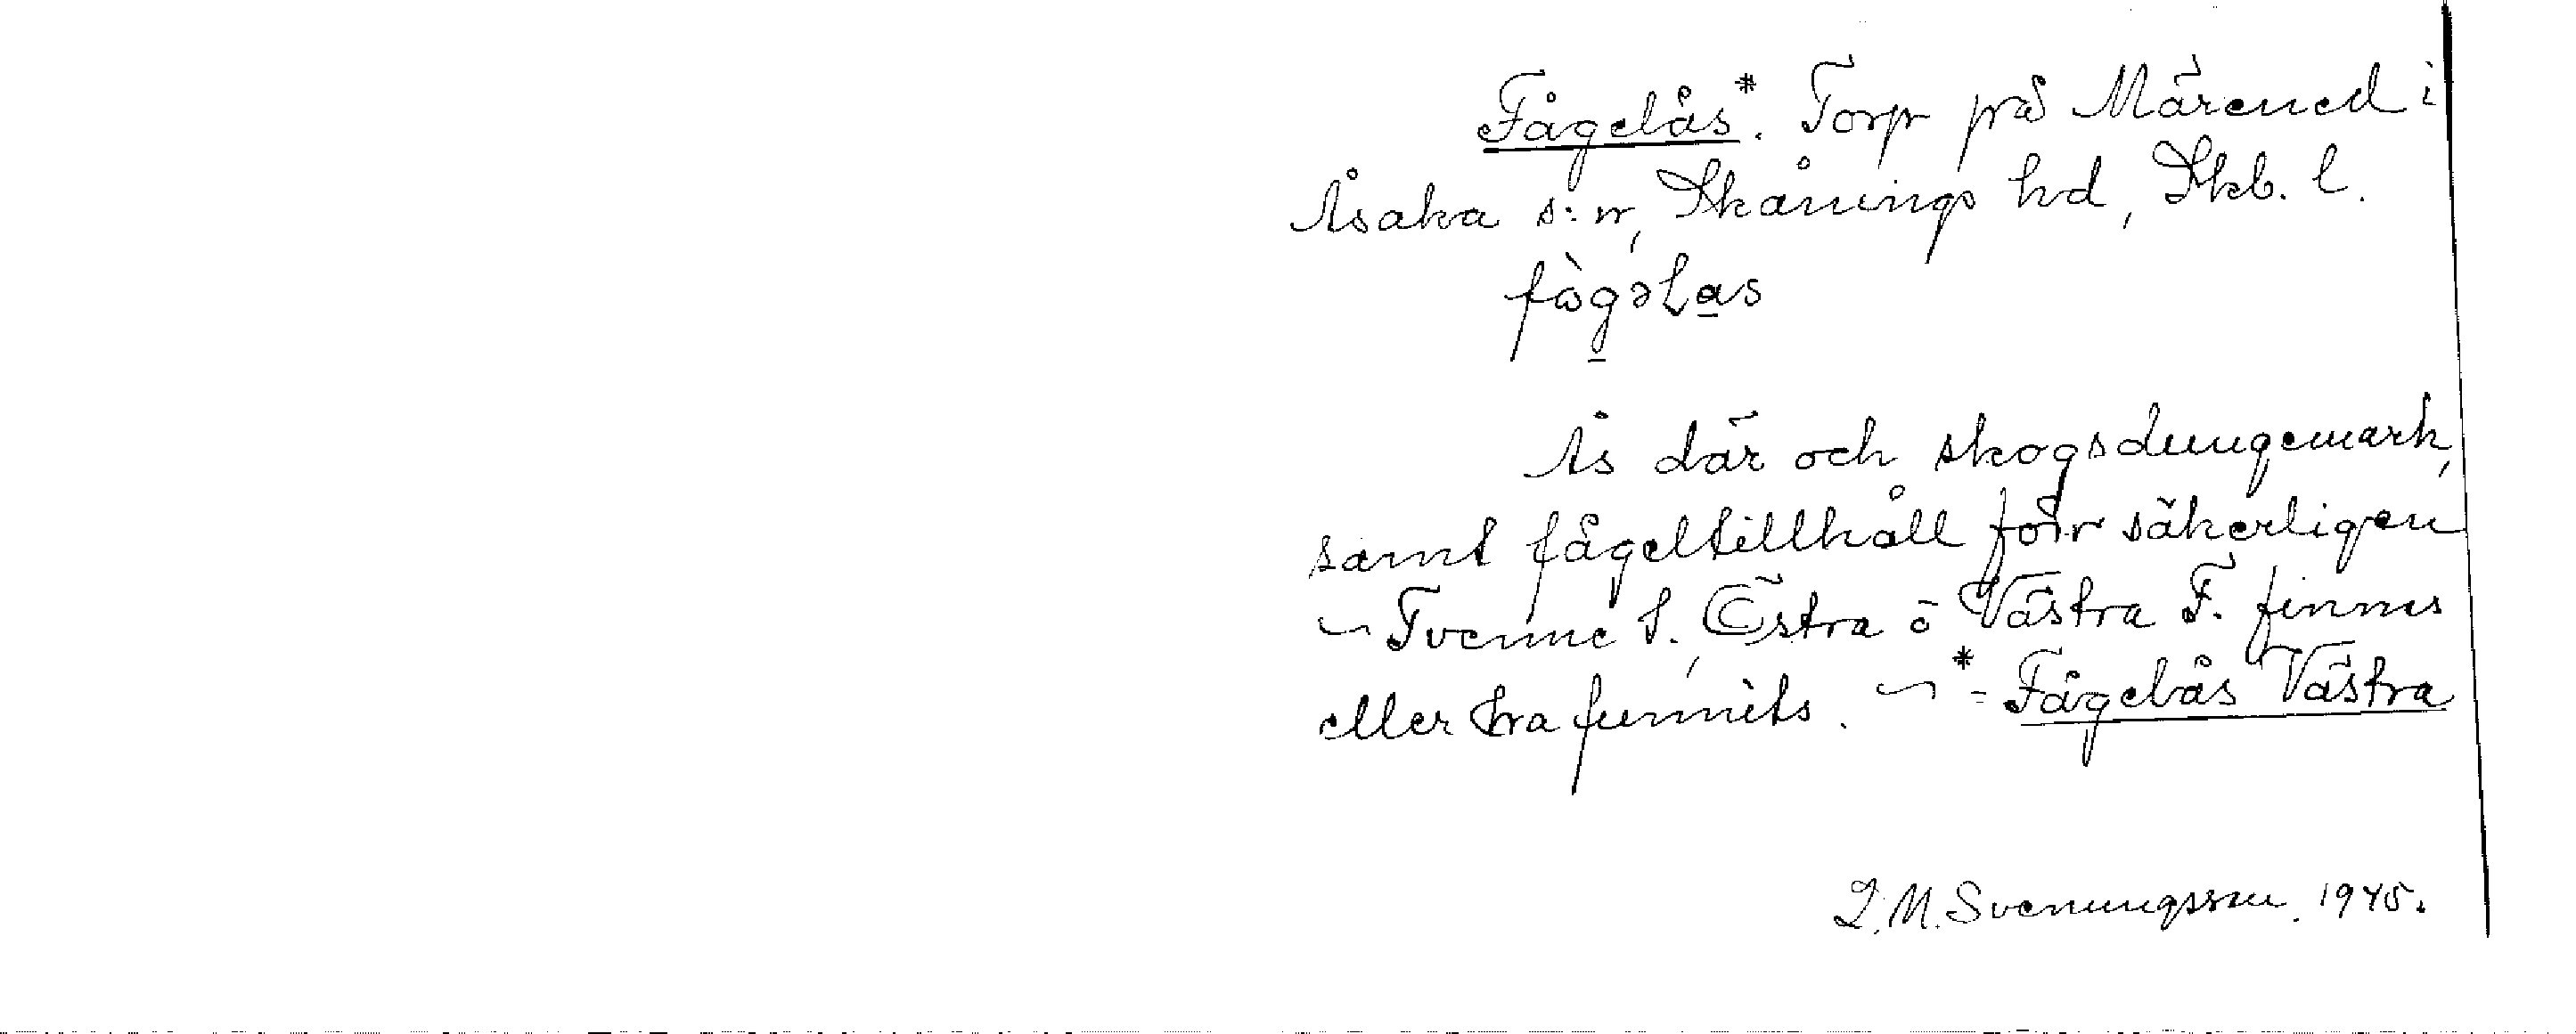 Fågelås*. Torp på Märened i
Åsaka s:n, Skånings hd, Skb. l.
fògəlas
Ås där och skogsdungemark,
samt fågeltillhåll förr säkerligen
~ Tvenne F., Östra o Västra F. finnes
eller ha funnits. ~ * = Fågelås Västra
L.M. Svenungsson. 1945.